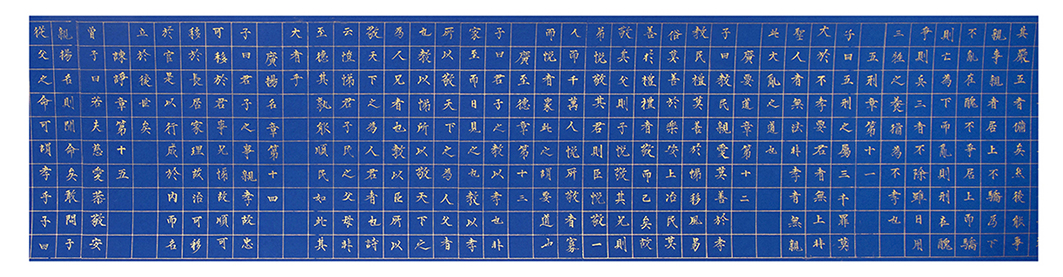 其嚴五者備矣然後能事
親事親者居上不驕為下
不亂在醜不爭居上而驕
則亡為下而亂則刑在醜
爭則兵三者不除雖日用
三牲之養猶為不孝也
五刑章第十一
子曰五刑之屬三千罪莫
大於不孝要君者無上非
聖人者無法非孝者無親
此大亂之道也
廣要道章第十二
子曰教民親愛莫善於孝
教民禮莫善於悌移風易
俗莫善於樂安上治民莫
善於禮禮者敬而已矣故
敬其父則子悅敬其兄則
弟悅敬其君則臣悅敬一
人而千萬人悅所敬者寡
而悅者衆此之謂要道也
廣至德章第十三
子曰君子之教以孝也非
家至而日見之也教以孝
所以敬天下之為人父者
也教以悌所以敬天下之
為人兄者也教以臣所以
敬天下之為人君者也詩
云愷悌君子民之父母非
至德其孰能順民如此其
大者乎
廣揚名章第十四
子曰君子之事親孝故忠
可移於君事兄悌故順可
移於長居家理故治可移
於官是以行成於內而名
立於後世矣
諫諍章第十五
曾子曰若夫慈愛恭敬安
親揚名則聞命矣敢問子
從父之命可謂孝乎子曰